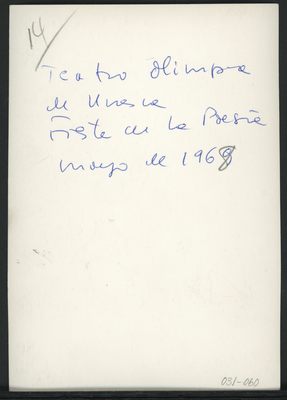 14/
Teatro Olimpia
de Huesca
Fiesta de la Poesía
mayo de 1968
031-060